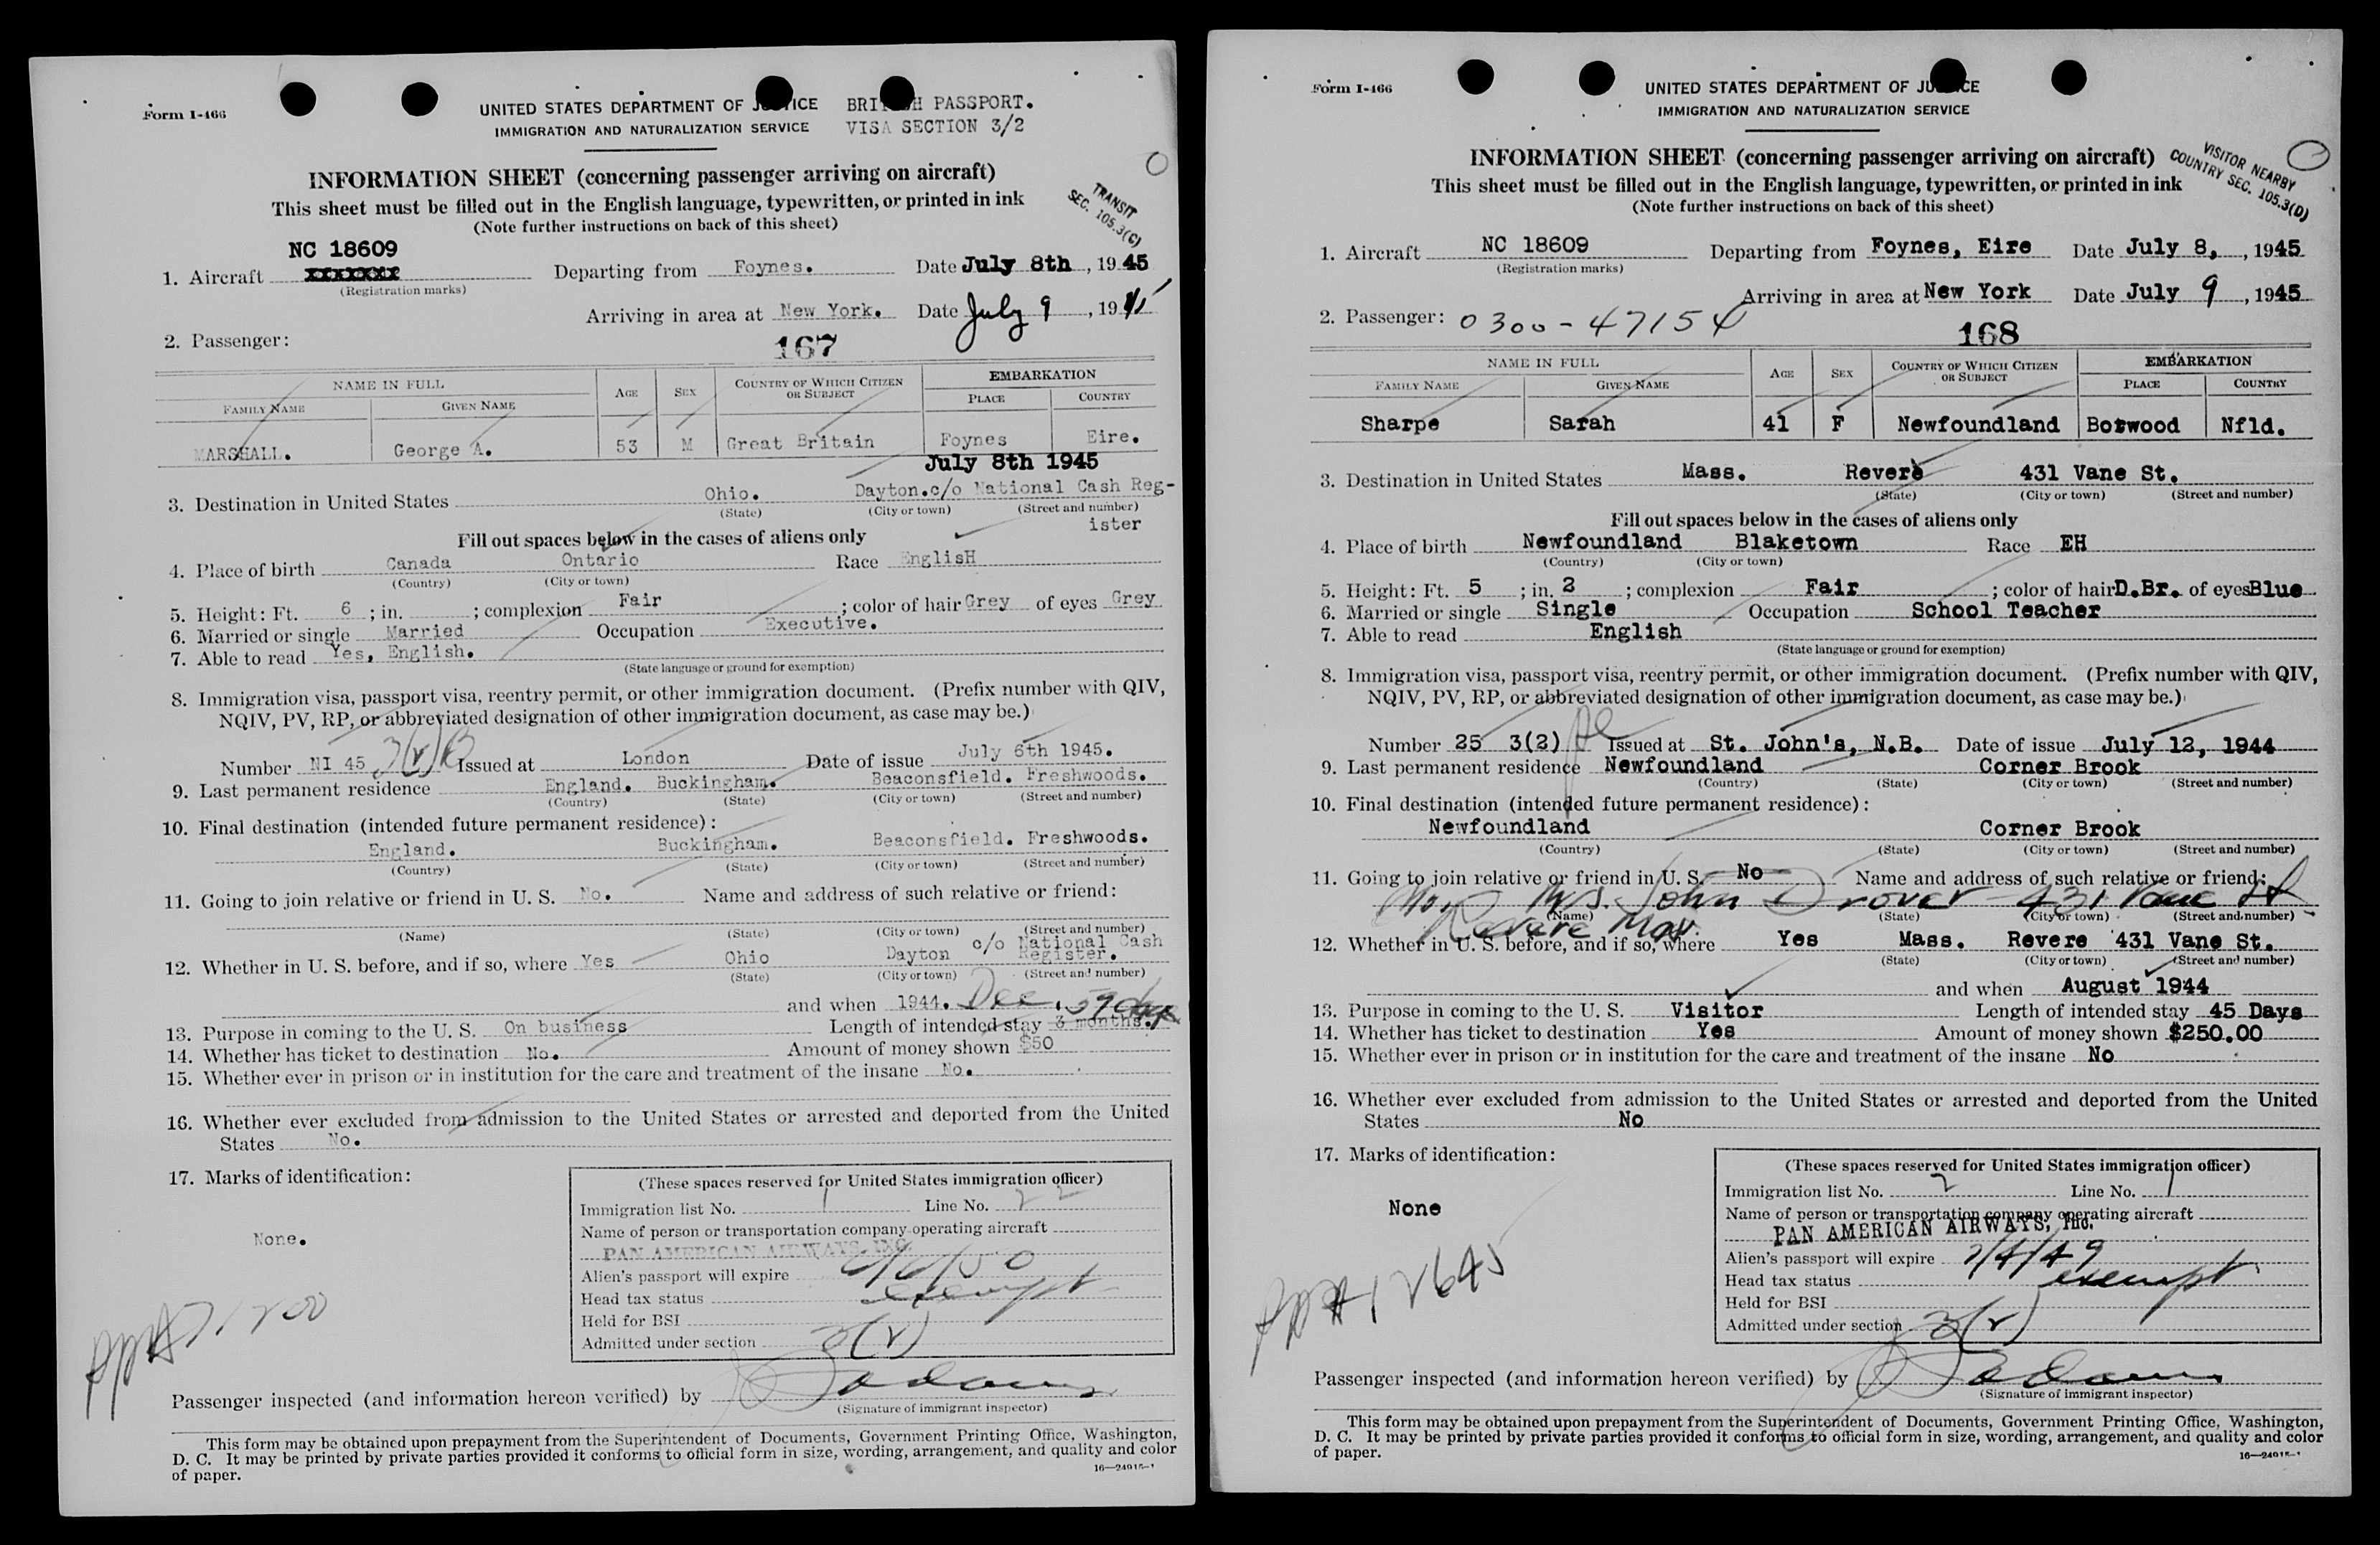 Form I-466
UNITED STATES DEPARTMENT OF JUSTICE BRITISH PASSPORT.
IMMIGRATION AND NATURALIZATION SERVICE VISA SECTION 3/2
INFORMATION SHEET (concerning passenger arriving on aircraft)
This sheet must be filled out in the English language, typewritten, or printed in ink
(Note further instructions on back of this sheet)
TRANSIT
SEC. 105.3(C)
NC 18609
1. Aircraft xxxxxxx Departing from Foynes. Date July 8th, 1945
(Registration marks)
Arriving in area at New York. Date July 9, 1945
2. Passenger:
167
NAME IN FULL AGE SEX COUNTRY OF WHICH CITIZEN OR SUBJECT EMBARKATION
FAMILY NAME GIVEN NAME PLACE COUNTRY
MARSHALL. George A. 53 M Great Britain Foynes Eire.
July 8th 1945
3. Destination in United States Ohio. Dayton.c/o National Cash Reg-
(State) (City or town) (Street and number)
ister
Fill out spaces below in the cases of aliens only
4. Place of birth Canada Ontario Race EnglisH
(Country) (City or town)
5. Height: Ft. 6 ; in. ; complexion Fair ; color of hair Grey of eyes Grey
6. Married or single Married Occupation Executive.
7. Able to read Yes, English.
(State language or ground for exemption)
8. Immigration visa, passport visa, reentry permit, or other immigration document. (Prefix number with QIV,
NQIV, PV, RP, or abbreviated designation of other immigration document, as case may be.)
Number NI 45 3(2) Issued at London Date of issue July 6th 1945.
9. Last permanent residence England. Buckingham. Beaconsfield. Freshwoods.
(Country) (State) (City or town) (Street and number)
10. Final destination (intended future permanent residence):
England. Buckingham. Beaconsfield. Freshwoods.
(Country) (State) (City or town) (Street and number)
11. Going to join relative or friend in U. S. No. Name and address of such relative or friend:
(Name) (State) (City or town) (Street and number)
c/o National Cash
12. Whether in U. S. before, and if so, where Yes Ohio Dayton Register.
(State) (City or town) (Street and number)
and when 1944. Dec.
13. Purpose in coming to the U. S. On business Length of intended stay 3 months.
14. Whether has ticket to destination No. Amount of money shown $50
15. Whether ever in prison or in institution for the care and treatment of the insane No.
16. Whether ever excluded from admission to the United States or arrested and deported from the United
States No.
17. Marks of identification:
None.
(These spaces reserved for United States immigration officer)
Immigration list No. 1 Line No. 22
Name of person or transportation company operating aircraft
PAN AMERICAN AIRWAYS, INC.
Alien's passport will expire 6/6/50
Head tax status exempt
Held for BSI
Admitted under section 3(2)
Passenger inspected (and information hereon verified) by
(Signature of immigrant inspector)
This form may be obtained upon prepayment from the Superintendent of Documents, Government Printing Office, Washington,
D. C. It may be printed by private parties provided it conforms to official form in size, wording, arrangement, and quality and color
of paper.
16—24915-1
Form I-466
UNITED STATES DEPARTMENT OF JUSTICE
IMMIGRATION AND NATURALIZATION SERVICE
INFORMATION SHEET (concerning passenger arriving on aircraft)
This sheet must be filled out in the English language, typewritten, or printed in ink
(Note further instructions on back of this sheet)
VISITOR NEARBY
COUNTRY SEC. 105.3(D)
1. Aircraft NC 18609 Departing from Foynes, Eire Date July 8, 1945
(Registration marks)
Arriving in area at New York Date July 9, 1945
2. Passenger: 0300-47154
168
NAME IN FULL AGE SEX COUNTRY OF WHICH CITIZEN OR SUBJECT EMBARKATION
FAMILY NAME GIVEN NAME PLACE COUNTRY
Sharpe Sarah 41 F Newfoundland Botwood Nfld.
3. Destination in United States Mass. Revere 431 Vane St.
(State) (City or town) (Street and number)
Fill out spaces below in the cases of aliens only
4. Place of birth Newfoundland Blaketown Race EH
(Country) (City or town)
5. Height: Ft. 5 ; in. 2 ; complexion Fair ; color of hair D.Br. of eyes Blue
6. Married or single Single Occupation School Teacher
7. Able to read English
(State language or ground for exemption)
8. Immigration visa, passport visa, reentry permit, or other immigration document. (Prefix number with QIV,
NQIV, PV, RP, or abbreviated designation of other immigration document, as case may be.)
Number 25 3(2) Issued at St. John's, N.B. Date of issue July 12, 1944
9. Last permanent residence Newfoundland Corner Brook
(Country) (State) (City or town) (Street and number)
10. Final destination (intended future permanent residence):
Newfoundland Corner Brook
(Country) (State) (City or town) (Street and number)
11. Going to join relative or friend in U. S. No Name and address of such relative or friend:
Mrs. John Drover 431 Vane St
(Name) (State) (City or town) (Street and number)
Revere Mass.
12. Whether in U. S. before, and if so, where Yes Mass. Revere 431 Vane St.
(State) (City or town) (Street and number)
and when August 1944
13. Purpose in coming to the U. S. Visitor Length of intended stay 45 Days
14. Whether has ticket to destination Yes Amount of money shown $250.00
15. Whether ever in prison or in institution for the care and treatment of the insane No
16. Whether ever excluded from admission to the United States or arrested and deported from the United
States No
17. Marks of identification:
None
(These spaces reserved for United States immigration officer)
Immigration list No. 2 Line No. 1
Name of person or transportation company operating aircraft
PAN AMERICAN AIRWAYS, Inc.
Alien's passport will expire 7/4/49
Head tax status exempt
Held for BSI
Admitted under section 3(2)
Passenger inspected (and information hereon verified) by
(Signature of immigrant inspector)
This form may be obtained upon prepayment from the Superintendent of Documents, Government Printing Office, Washington,
D. C. It may be printed by private parties provided it conforms to official form in size, wording, arrangement, and quality and color
of paper.
16—24915-1